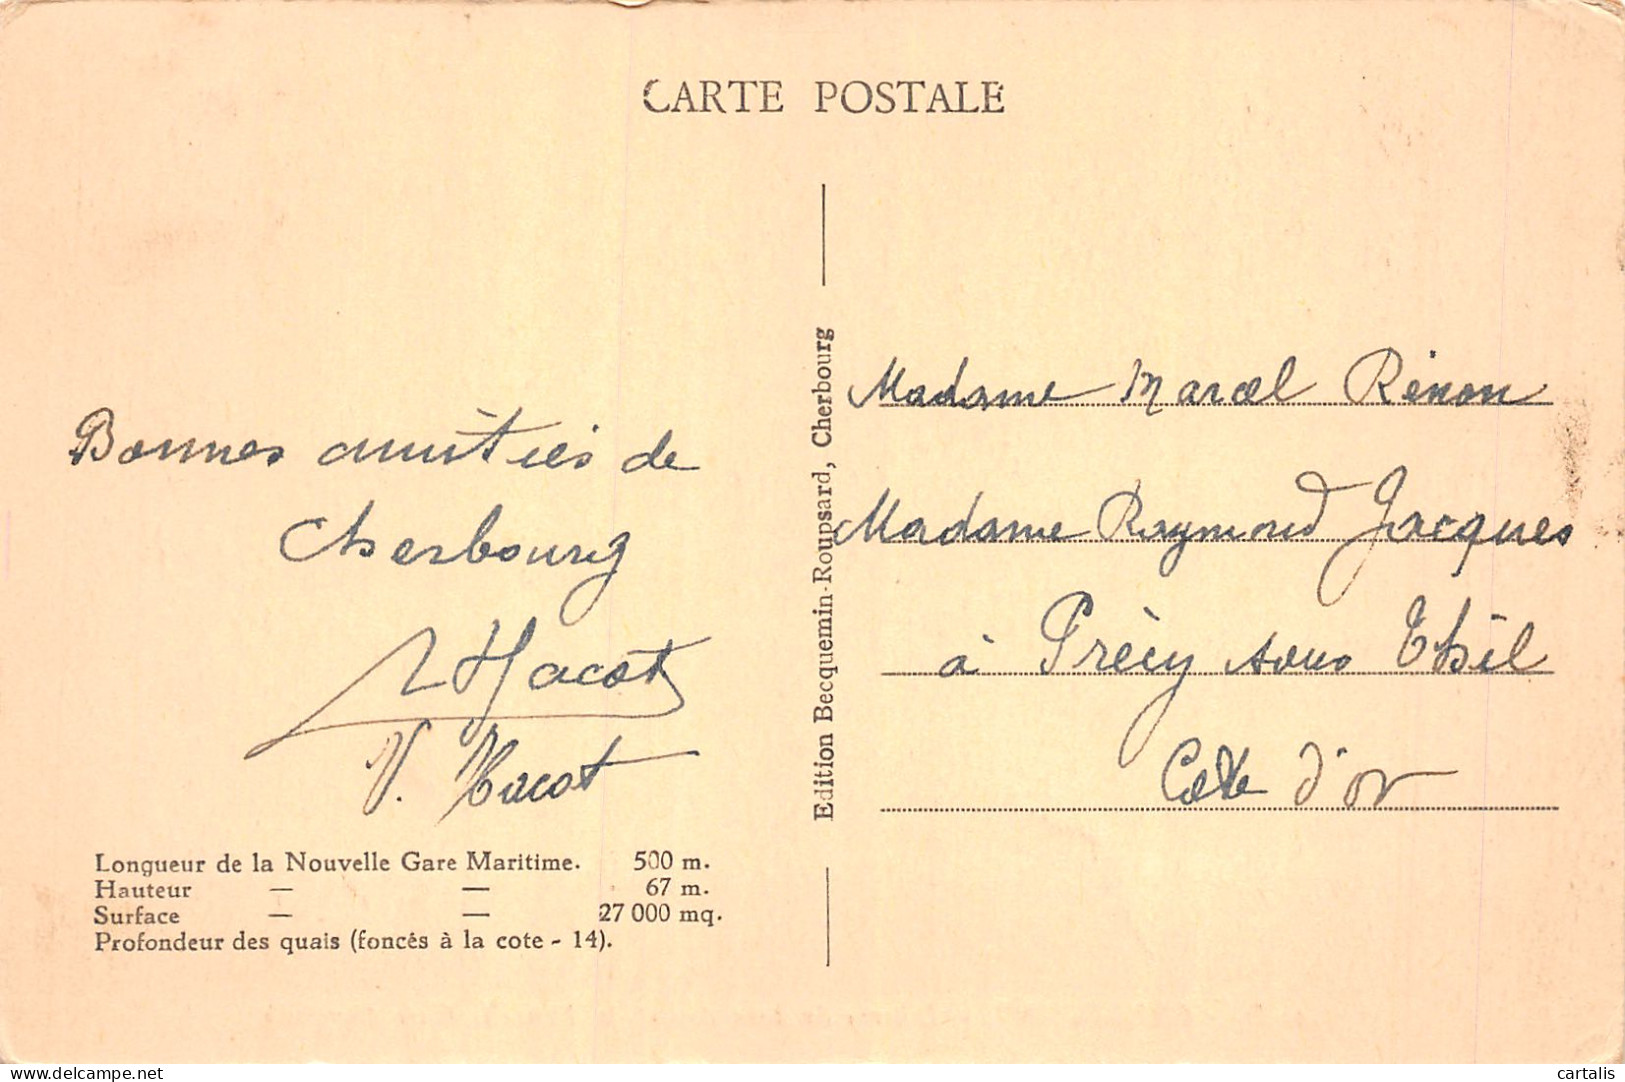 CARTE POSTALE
Bonnes amitiés de
Cherbourg
Hacot
V. Hacot
Longueur de la Nouvelle Gare Maritime. 500 m.
Hauteur — — 67 m.
Surface — — 27 000 mq.
Profondeur des quais (foncés à la cote - 14).
Edition Becquemin-Roupsard, Cherbourg
Madame Marcel Rénon
Madame Raymond Jacques
à Précy sous Thil
Côte d'or
cartalis
delcampe.net